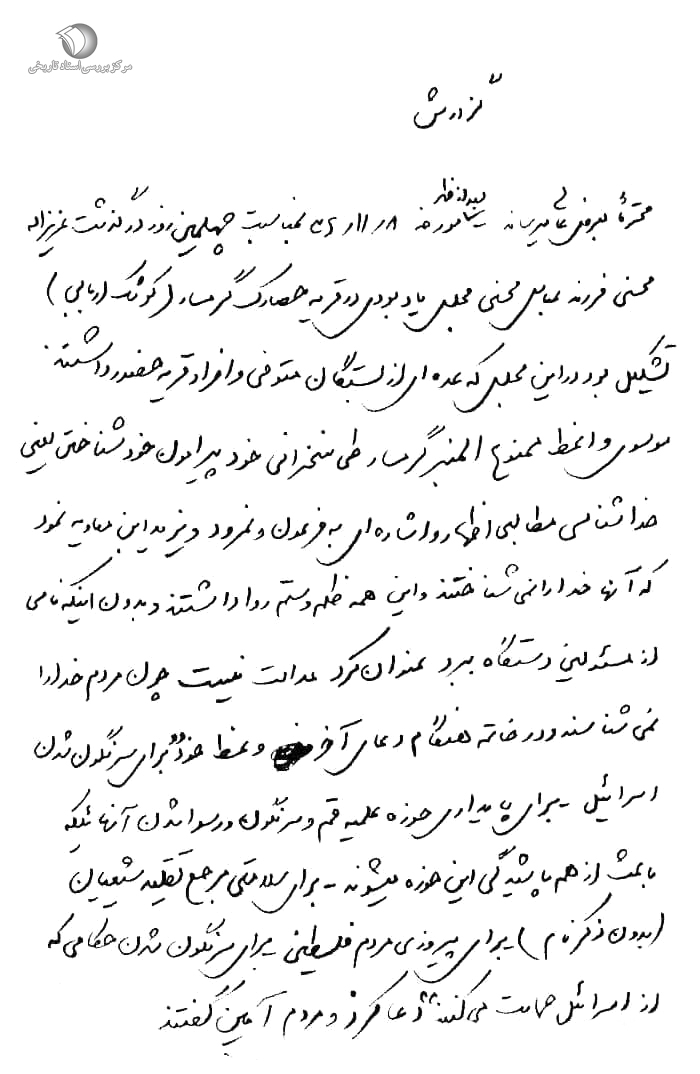 مرکز بررسی اسناد تاریخی
گزارش
بعدازظهر
محترماً بعرض عالی میرساند مورخه ۸ر۱۱ر۳۶ بمناسبت چهلمین روز درگذشت عزیزاله
محسنی فرزند عباسعلی محسنی مجلس یادبودی در قریه حصارک گرمسار (کوشک اربابی)
تشکیل بود در این مجلس که عده ای از بستگان متوفی و افراد قریه حضور داشتند
موسوی واعظ ممنوع المنبر گرمسار طی سخنرانی خود پیرامون خود شناختن یعنی
خدا شناسی مطالبی اظهار و اشاره ای به فرعون و نمرود و یزید ابن معاویه نمود
که آنها خدا را نمی شناختند و این همه ظلم و ستم روا داشتند و بدون اینکه نامی
از مسئولین دستگاه ببرد عنوان کرد عدالت نیست چون مردم خدا را
نمی شناسند و در خاتمه هنگام دعای آخر وعظ خود برای سرنگون شدن
اسرائیل - برای پایداری حوزه علمیه قم و سرنگون و رسوا شدن آنهائیکه
باعث از هم پاشیدگی این حوزه میشوند - برای سلامتی مرجع تقلید شیعیان
(بدون ذکر نام) برای پیروزی مردم فلسطین برای سرنگون شدن حکامی که
از اسرائیل حمایت می کنند دعا کرد و مردم آمین گفتند